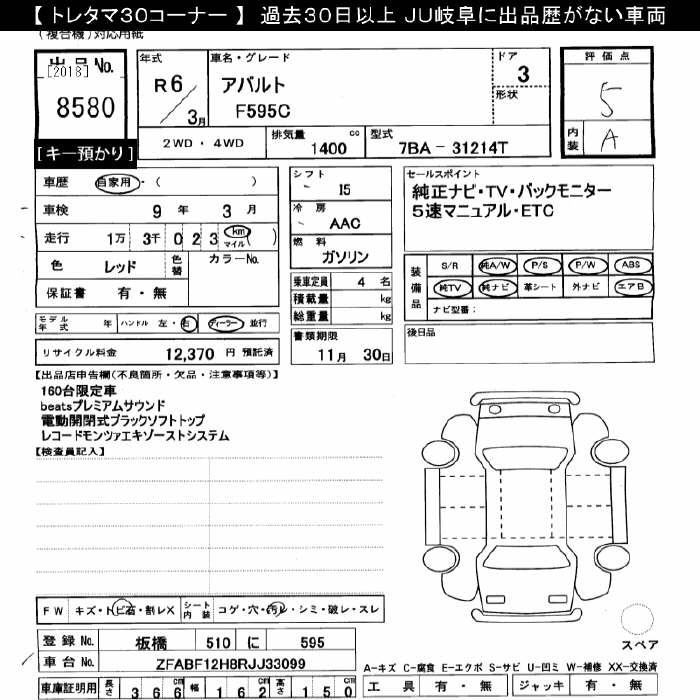 【 トレタマ30コーナー 】 過去30日以上 JU岐阜に出品歴がない車両
(複合機)対応用紙
出品No.
[2018]
8580
[キー預かり]
年式
R 6
3月
車名・グレード
アバルト
F595C
ドア
3
形状
2WD・4WD
排気量
1400 cc
型式
7BA - 31214T
評価点
5
内装
A
車歴 自家用・( )
車検 9年 3月
走行 1万 3千 0 2 3 km マイル ( )
色 レッド 色替 カラーNo.
保証書 有・無
モデル年式 年 ハンドル 左・右 ディーラー 並行
リサイクル料金 12,370 円 預託済
シフト
I5
冷房
AAC
燃料
ガソリン
乗車定員 4 名
積載量 kg
総重量 kg
書類期限
11月 30日
セールスポイント
純正ナビ・TV・バックモニター
5速マニュアル・ETC
装備品
S/R 純A/W P/S P/W ABS
純TV 純ナビ 革シート 外ナビ エアB
ナビ型番:
後日品
【出品店申告欄(不良箇所・欠品・注意事項等)】
160台限定車
beatsプレミアムサウンド
電動開閉式ブラックソフトトップ
レコードモンツァエキゾーストシステム
【検査員記入】
FW キズ・トビ石・割レX シート内装 コゲ・穴・汚レ・シミ・破レ・スレ
登録No. 板橋 510 に 595
車台No. ZFABF12H8RJJ33099
車庫証明用 長さ 366 cm 幅 162 cm 高さ 150 cm
スペア
A-キズ C-腐食 E-エクボ S-サビ U-凹ミ W-補修 XX-交換済
工具 有・無 ジャッキ 有・無